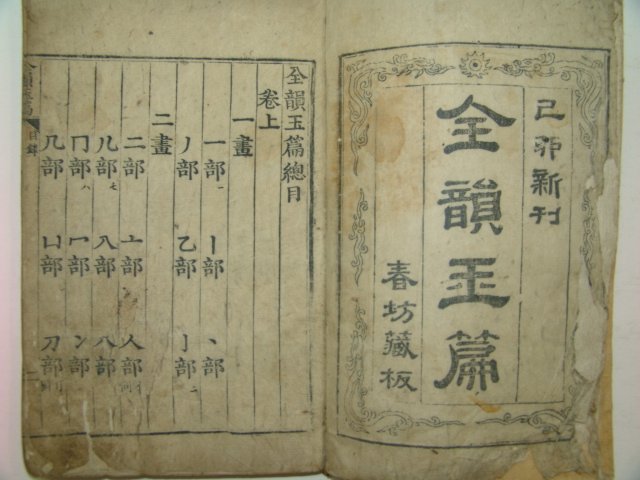 己卯新刊
全韻玉篇
春坊藏板
全韻玉篇總目
卷上
一畫
一部一 丨部 丶部
丿部 乙部 亅部二
二畫
二部 亠部 人部
儿部七 入部 八部
冂部八 冖部 冫部
几部 凵部 刀部
目錄